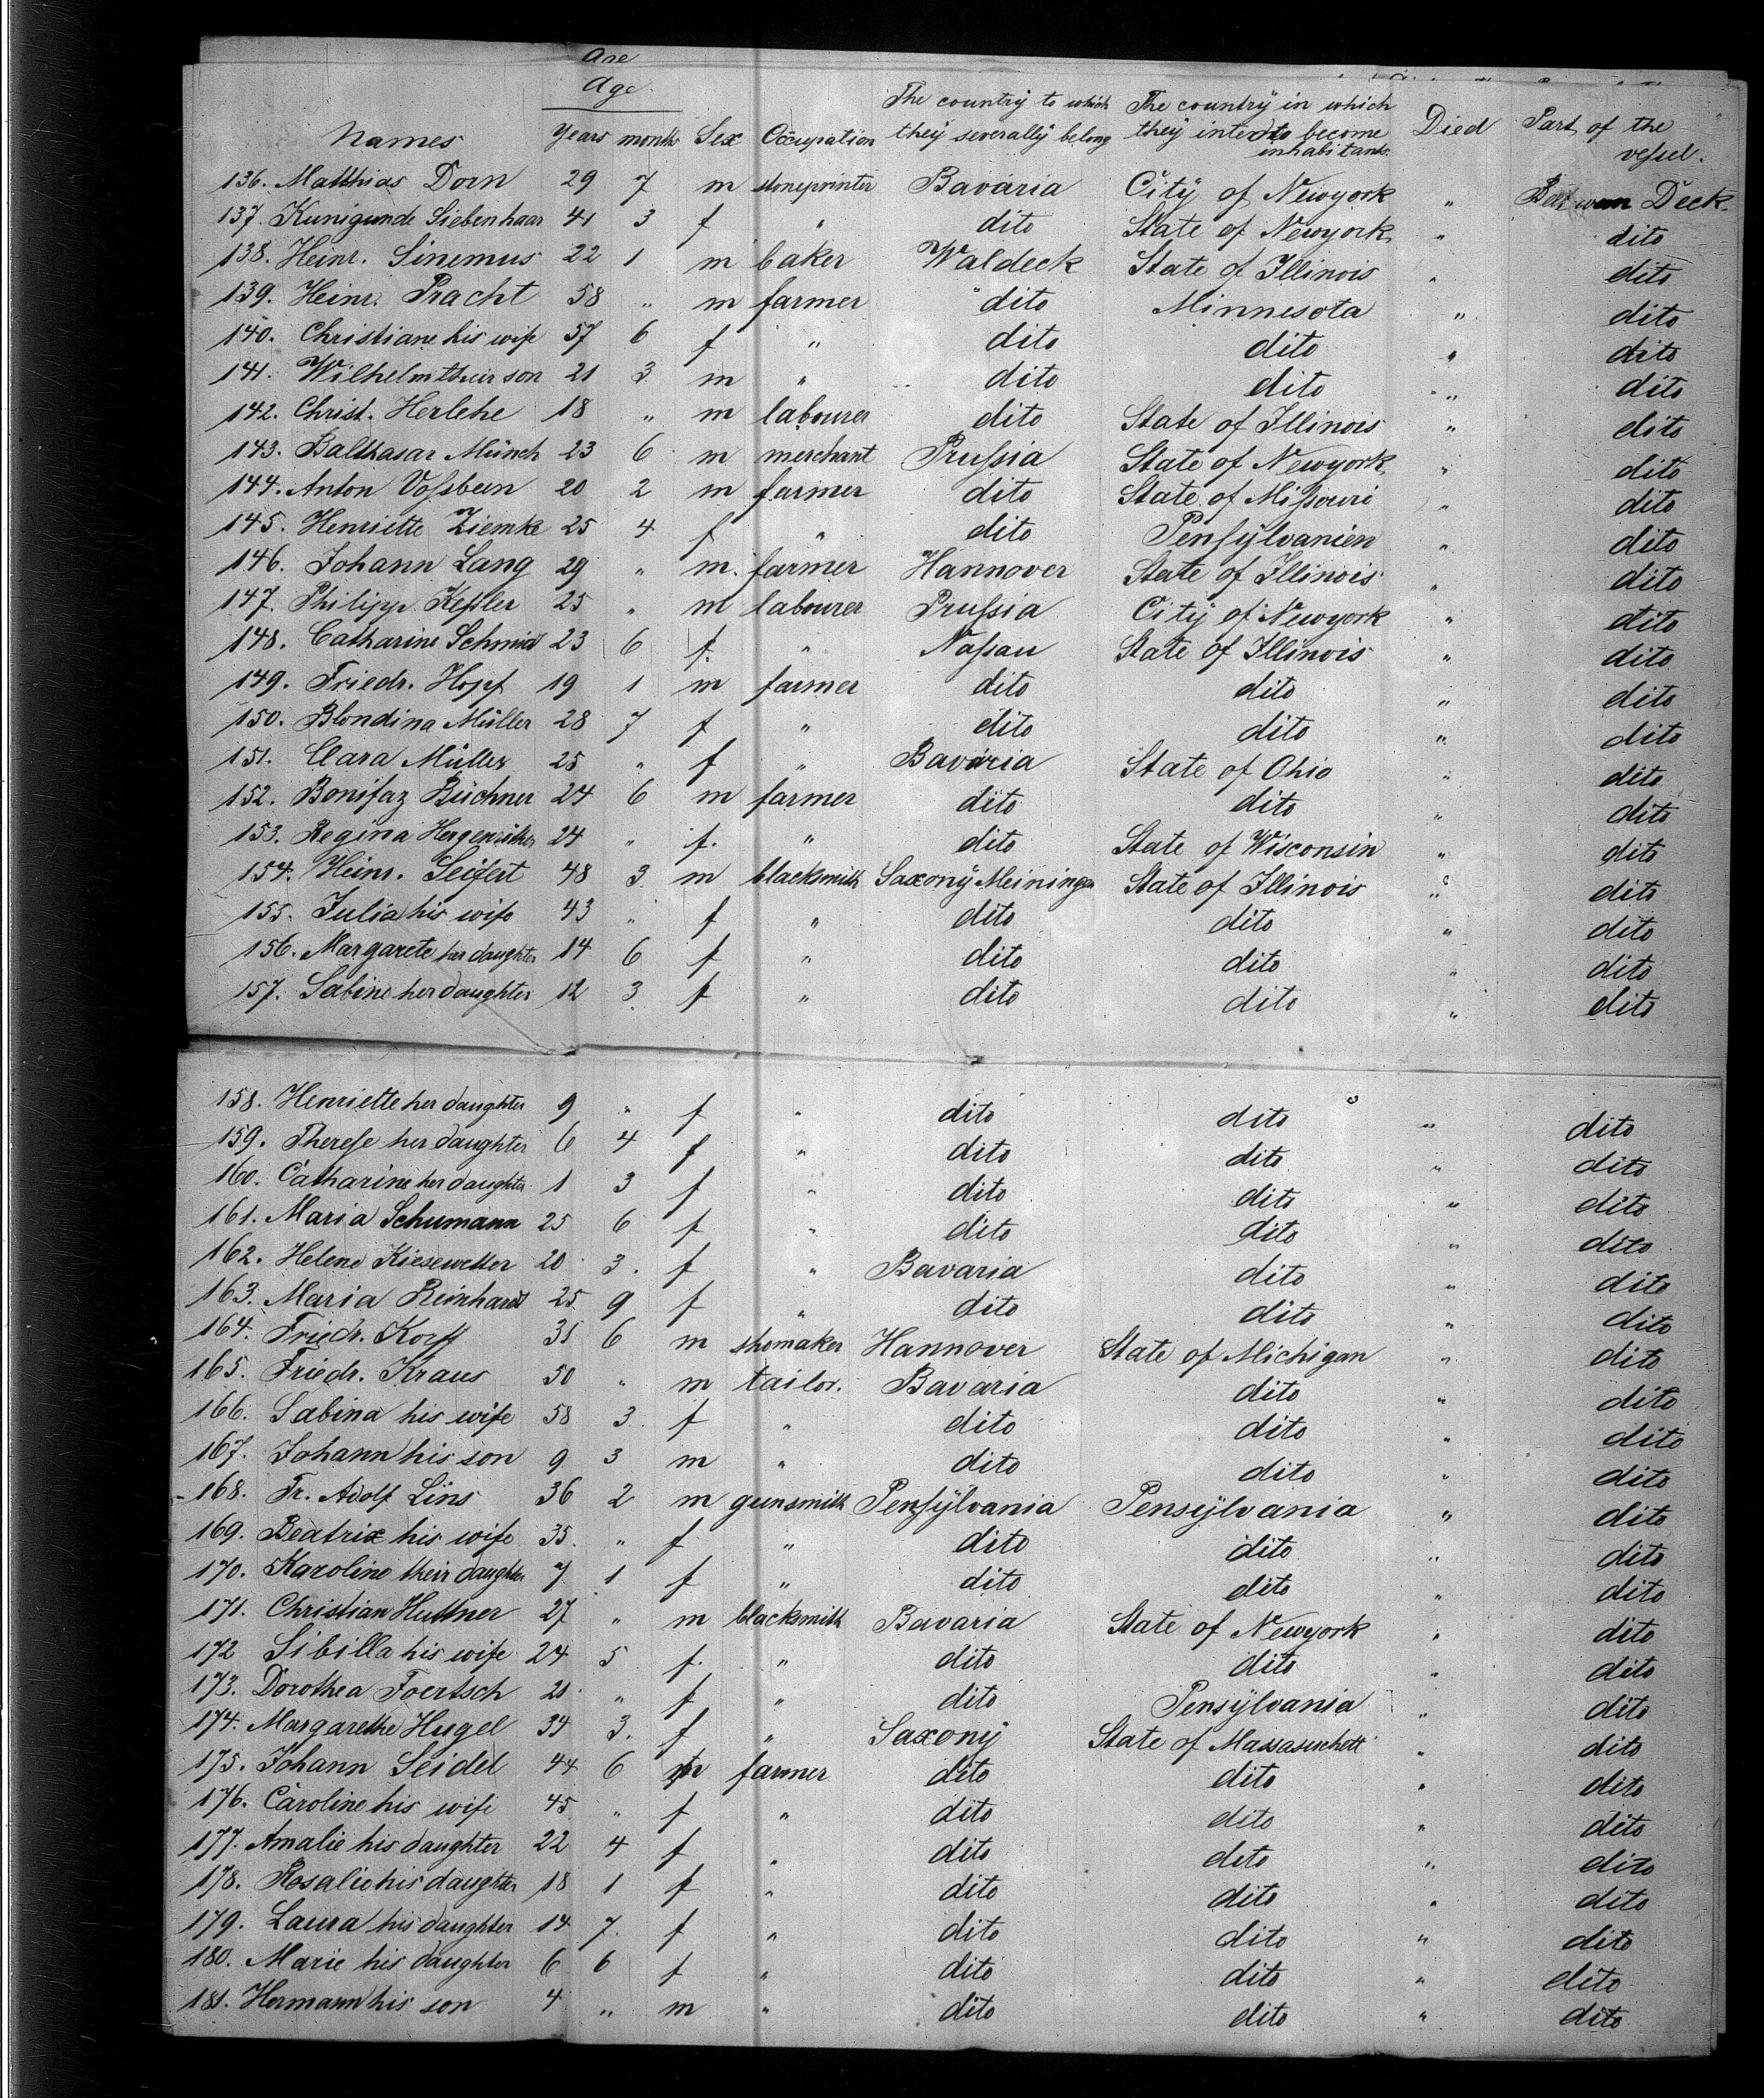 Age
Age
Names Years months Sex Occupation The country to which they severally belong The country in which they intend to become inhabitants. Died Part of the vessel.
136. Matthias Dorn 29 7 m stoneprinter Bavaria City of Newyork " Between Deck.
137. Kunigunde Siebenhaar 41 3 f " dito State of Newyork " dito
138. Heinr. Sinemus 22 1 m baker Waldeck State of Illinois " dito
139. Heinr. Pracht 58 " m farmer dito Minnesota " dito
140. Christiane his wife 57 6 f " dito dito " dito
141. Wilhelm their son 21 3 m " dito dito " dito
142. Christ. Herlehe 18 " m labourer dito State of Illinois " dito
143. Balthasar Münch 23 6 m merchant Prußia State of Newyork " dito
144. Anton Voßbeen 20 2 m farmer dito State of Mißouri " dito
145. Henriette Ziemke 25 4 f " dito Pensylvanien " dito
146. Johann Lang 29 " m. farmer Hannover State of Illinois " dito
147. Philipp Keßler 25 " m labourer Prußia City of Newyork " dito
148. Catharine Schmidt 23 6 f. " Naßau State of Illinois " dito
149. Friedr. Hopf 19 1 m farmer dito dito " dito
150. Blondina Müller 28 7 f " dito dito " dito
151. Clara Müller 25 " f " Bavaria State of Ohio " dito
152. Bonifaz Büchner 24 6 m farmer dito dito " dito
153. Regina Hergenröther 24 " f. " dito State of Wisconsin " dito
154. Heinr. Seifert 48 3 m blacksmith Saxony Meiningen State of Illinois " dito
155. Julia his wife 43 " f " dito dito " dito
156. Margarete her daughter 14 6 f " dito dito " dito
157. Sabine her daughter 12 3 f " dito dito " dito
158. Henriette her daughter 9 " f " dito dito " dito
159. Therese her daughter 6 4 f " dito dito " dito
160. Catharine her daughter 1 3 f " dito dito " dito
161. Maria Schumann 25 6 f " dito dito " dito
162. Helene Kiesewetter 20 3. f " Bavaria dito " dito
163. Maria Reinhardt 25 9 f " dito dito " dito
164. Friedr. Korff 31 6 m shomaker Hannover State of Michigan " dito
165. Friedr. Kraus 50 " m tailor. Bavaria dito " dito
166. Sabina his wife 58 3 f " dito dito " dito
167. Johann his son 9 3 m " dito dito " dito
168. Fr. Adolf Lins 36 2 m gunsmith Pensylvania Pensylvania " dito
169. Beatrix his wife 35. " f " dito dito " dito
170. Karoline their daughter 7 1 f " dito dito " dito
171. Christian Huttner 27 " m blacksmith Bavaria State of Newyork " dito
172 Sibilla his wife 24 5 f. " dito dito " dito
173. Dorothea Foertsch 21 " f " dito Pensylvania " dito
174. Margarethe Hugel 34 3. f " Saxony State of Massasuchett " dito
175. Johann Seidel 44 6 m farmer dito dito " dito
176. Caroline his wife 45 " f " dito dito " dito
177. Amalie his daughter 22 4 f " dito dito " dito
178. Rosalie his daughter 18 1 f " dito dito " dito
179. Laura his daughter 14 7. f " dito dito " dito
180. Marie his daughter 6 6 f " dito dito " dito
181. Hermann his son 4 " m " dito dito " dito